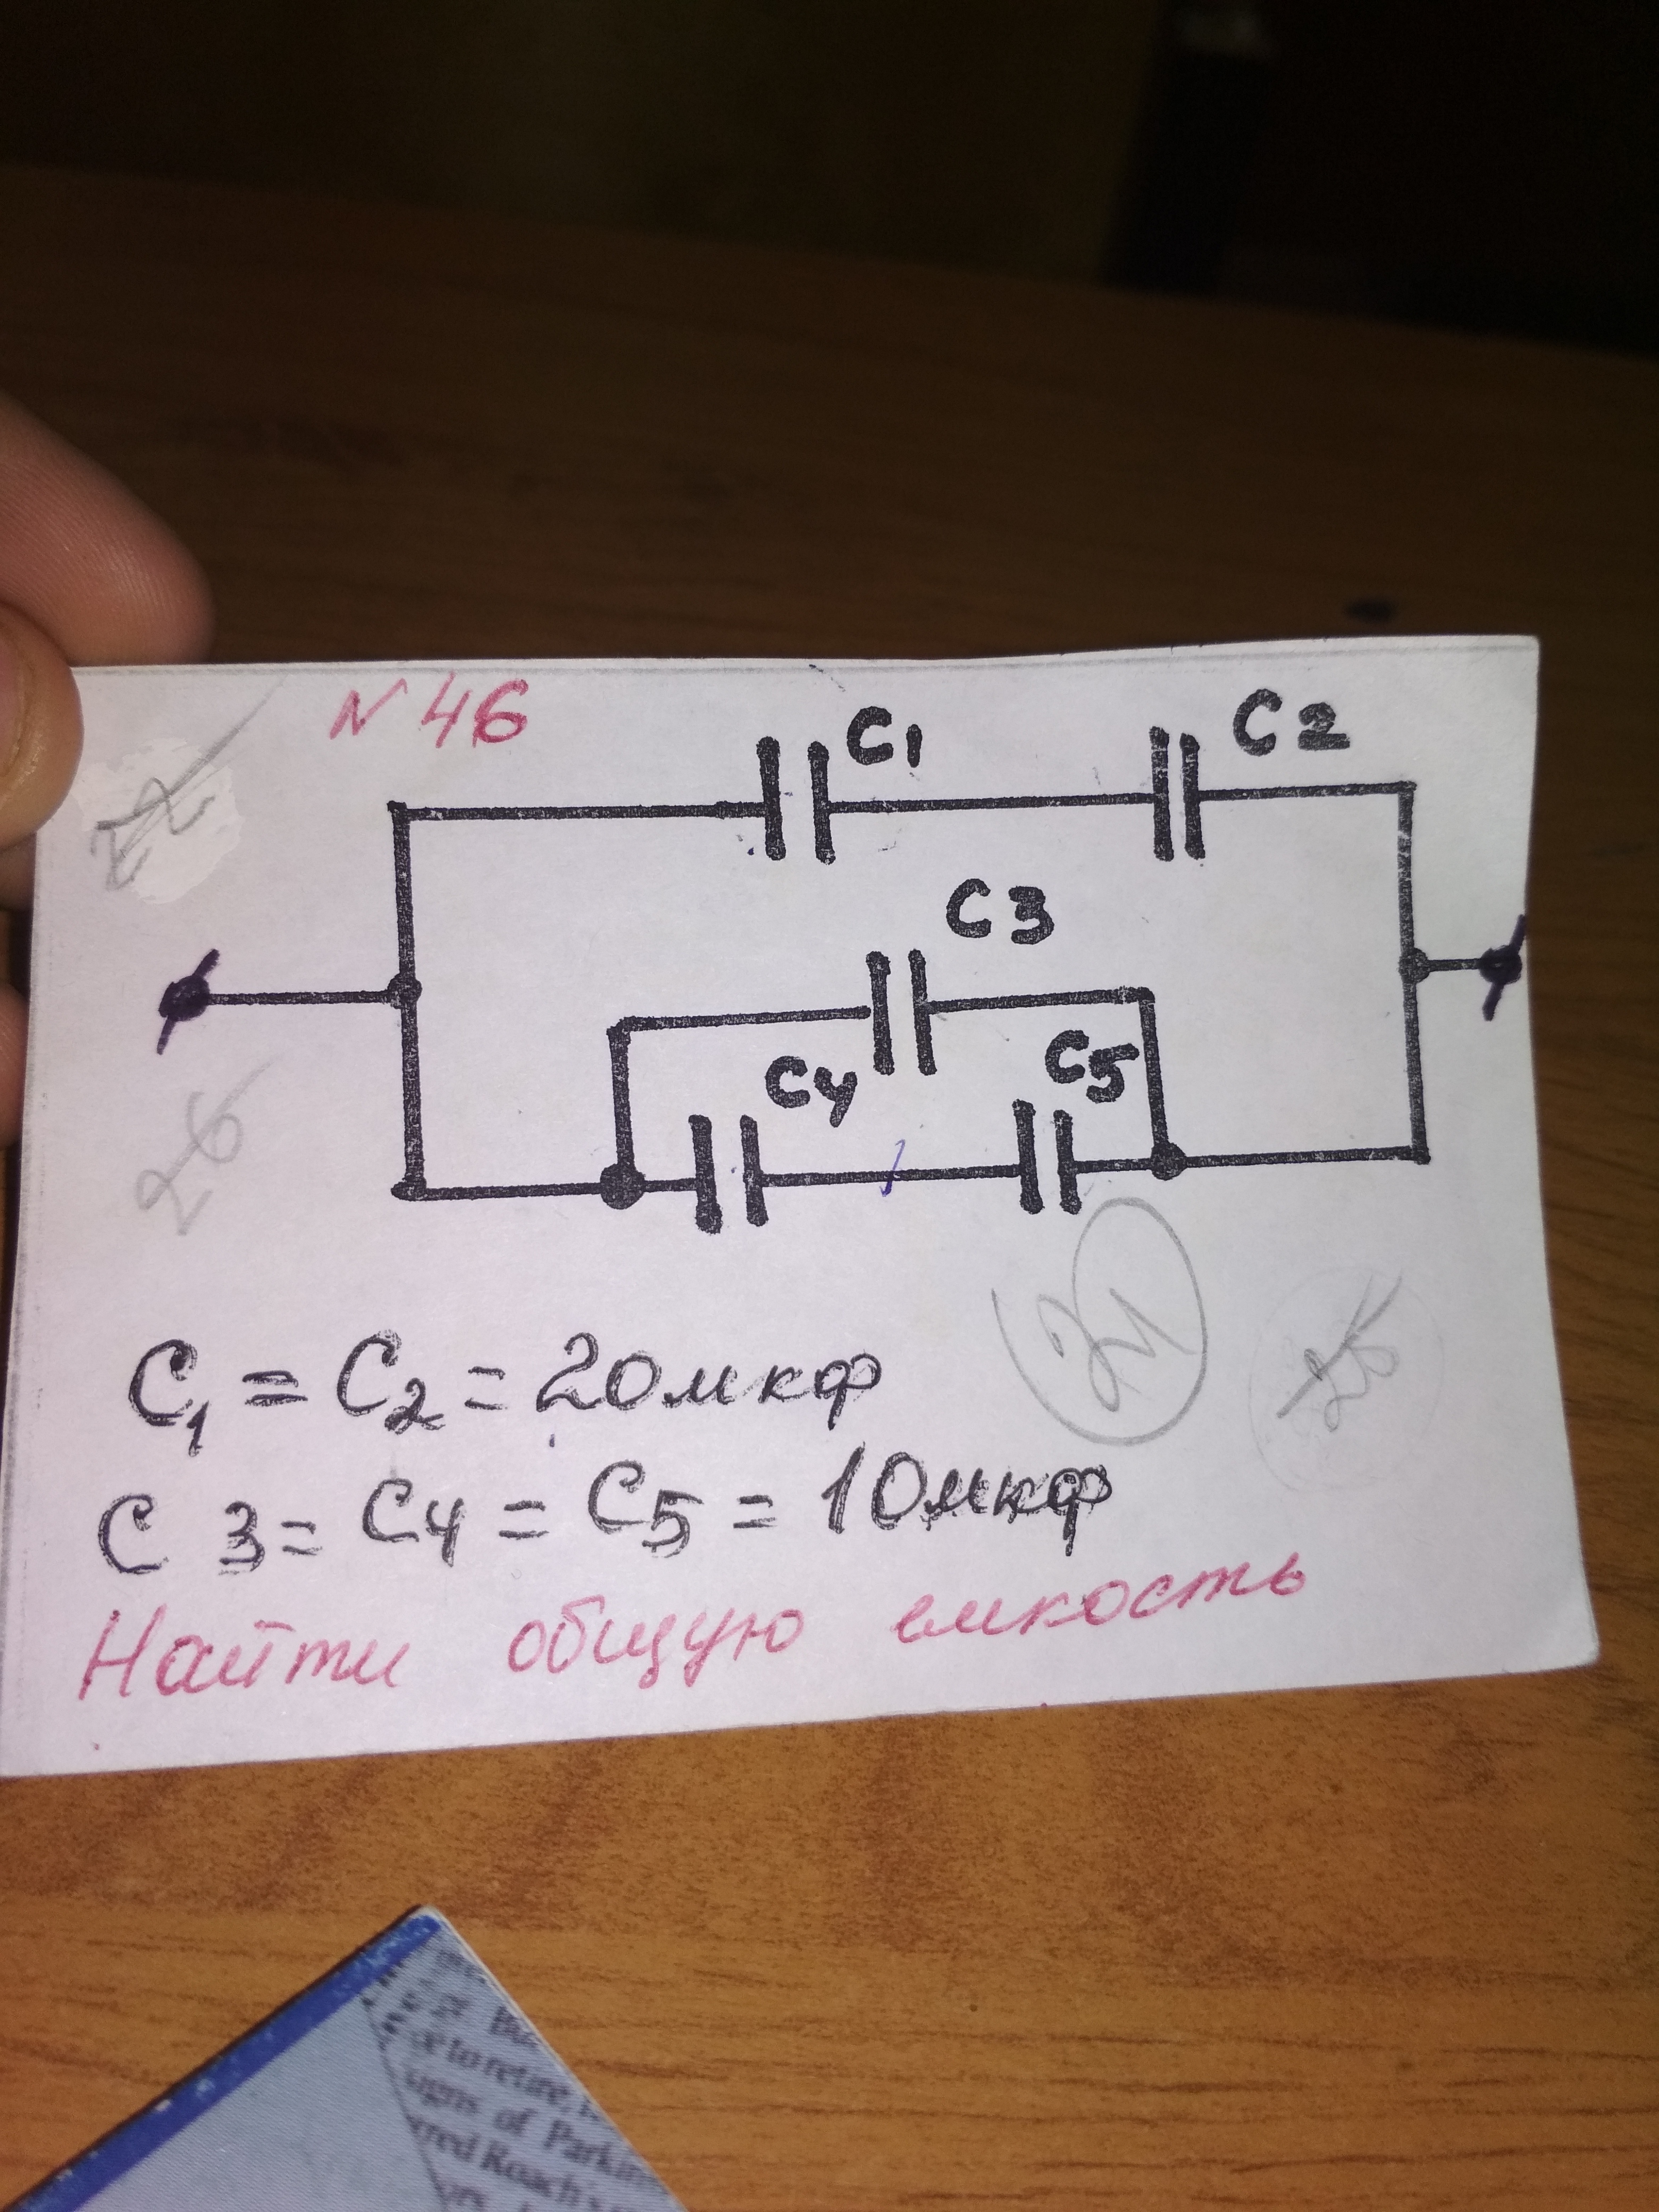 N 46
C1
C2
22
C3
C4
C5
26
31
26
C1 = C2 = 20мкф
C 3 = C4 = C5 = 10мкф
Найти общую емкость
to retire,
of Parkin
Road